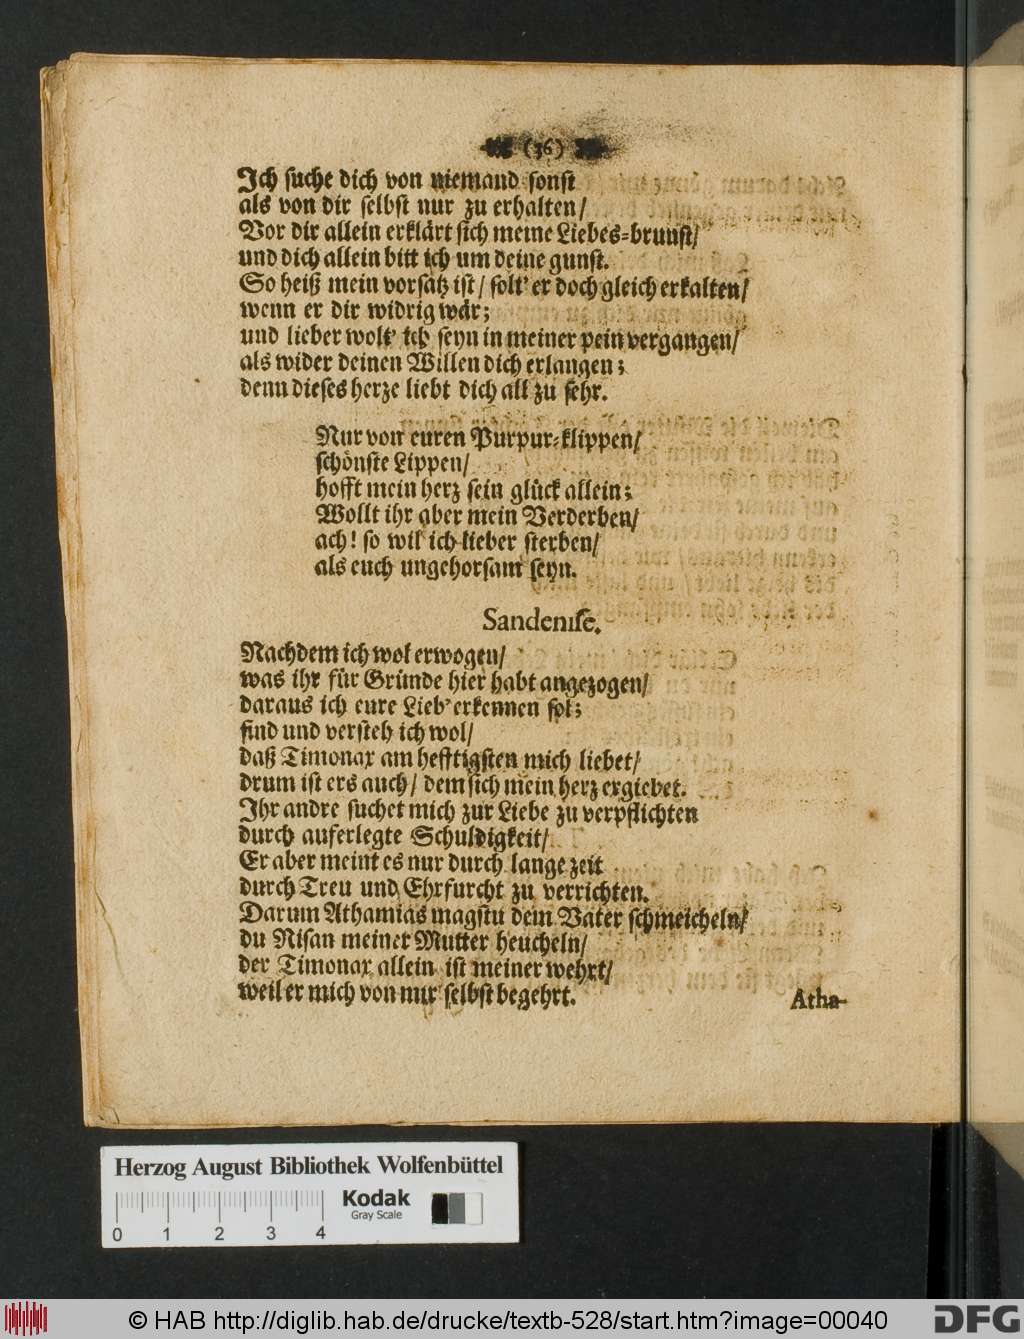 (36)
Ich suche dich von niemand sonst
als von dir selbst nur zu erhalten/
Vor dir allein erklärt sich meine Liebes-brunst/
und dich allein bitt ich um deine gunst.
So heiß mein vorsatz ist/ solt' er doch gleich erkalten/
wenn er dir widrig wär;
und lieber wolt' ich seyn in meiner pein vergangen/
als wider deinen Willen dich erlangen;
denn dieses herze liebt dich all zu sehr.
Nur von euren Purpur-klippen/
schönste Lippen/
hofft mein herz sein glück allein;
Wollt ihr aber mein Verderben/
ach! so wil ich lieber sterben/
als euch ungehorsam seyn.
Sandenise.
Nachdem ich wol erwogen/
was ihr für Gründe hier habt angezogen/
daraus ich eure Lieb' erkennen sol;
find und versteh ich wol/
daß Timonax am hefftigsten mich liebet/
drum ist ers auch/ dem sich mein herz ergiebet.
Ihr andre suchet mich zur Liebe zu verpflichten
durch auferlegte Schuldigkeit/
Er aber meint es nur durch lange zeit
durch Treu und Ehrfurcht zu verrichten.
Darum Athamas magstu dem Vater schmeicheln/
du Nisan meiner Mutter heucheln/
der Timonax allein ist meiner wehrt/
weil er mich von mir selbst begehrt.
Atha-
Herzog August Bibliothek Wolfenbüttel
Kodak
Gray Scale
0 1 2 3 4
© HAB http://diglib.hab.de/drucke/textb-528/start.htm?image=00040
DFG